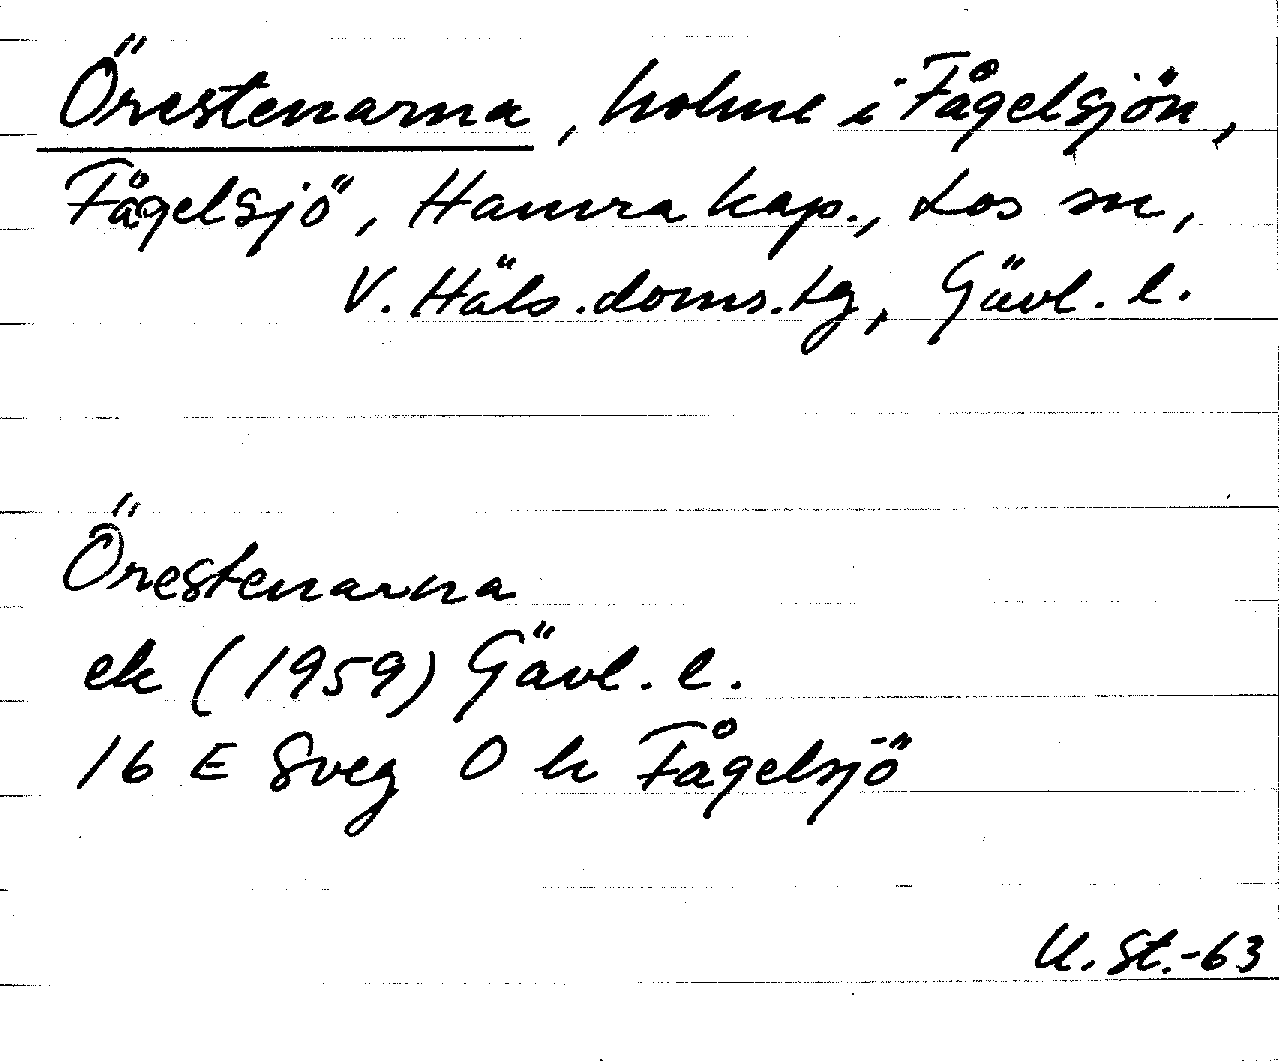 Örestenarna, holme i Fågelsjön,
Fågelsjö, Hamra kap., Los sn,
V. Häls. doms. tg, Gävl. l.
Örestenarna
ek (1959) Gävl. l.
16 E Sveg O h Fågelsjö
U. St.-63